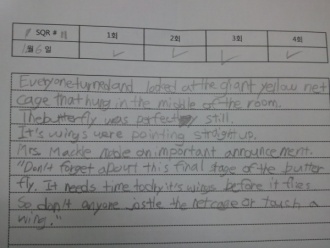 SQR # 1회 2회 3회 4회
월 6일
Everyone turned and looked at the giant yellow net
cage that hung in the middle of the room.
The butterfly was perfectly still.
It's wings were pointing straight up.
Mrs. Mackle made an important announcement.
"Don't forget about this final stage of the butter
fly. It needs time to dry it's wings before it flies
So don't anyone jostle the net cage or touch a
wing."